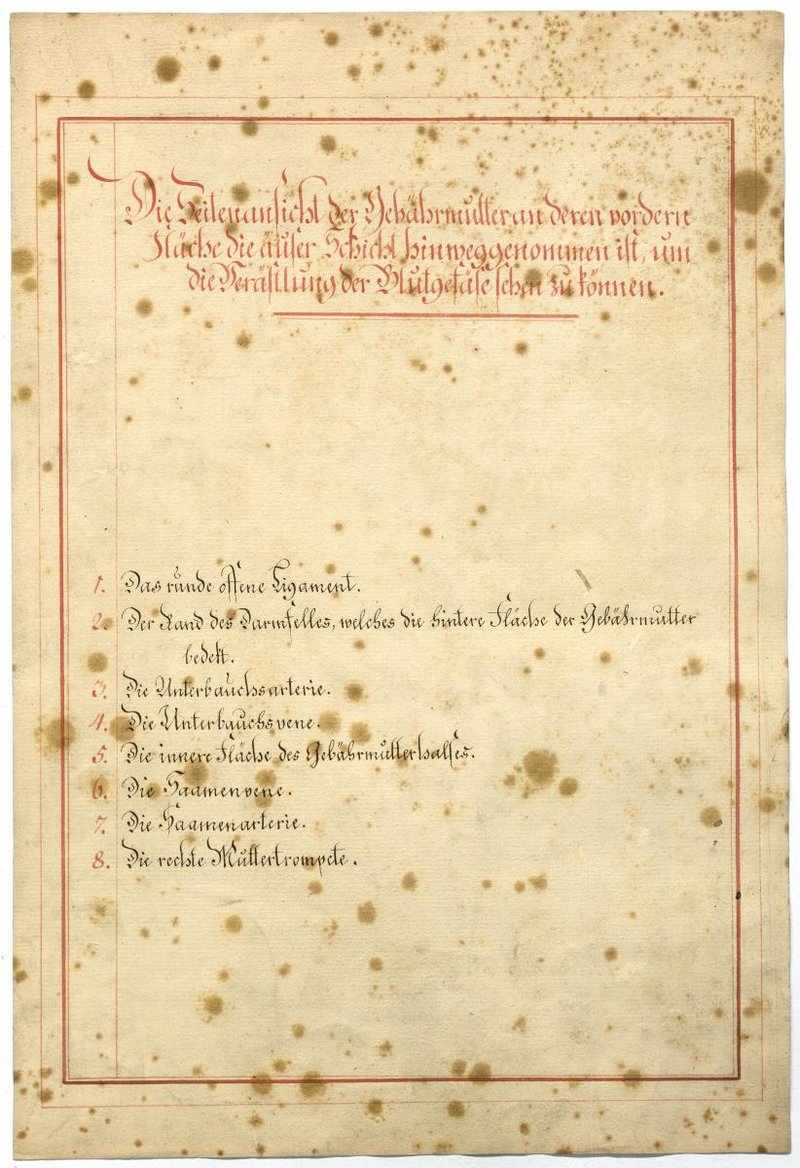 Die Seitenansicht der Gebährmutter an deren vordern
Fläche die äußer Schicht hinweggenommen ist, um
die Verästlung der Blutgefäße sehen zu können.
1. Das runde offene Ligament.
2. Der Rand des Darmfelles, welches die hintere Fläche der Gebährmutter
bedekt.
3. Die Unterbauchsarterie.
4. Die Unterbauchsvene.
5. Die innere Fläche des Gebährmutterhalses.
6. Die Saamenvene.
7. Die Saamenarterie.
8. Die rechte Muttertrompete.